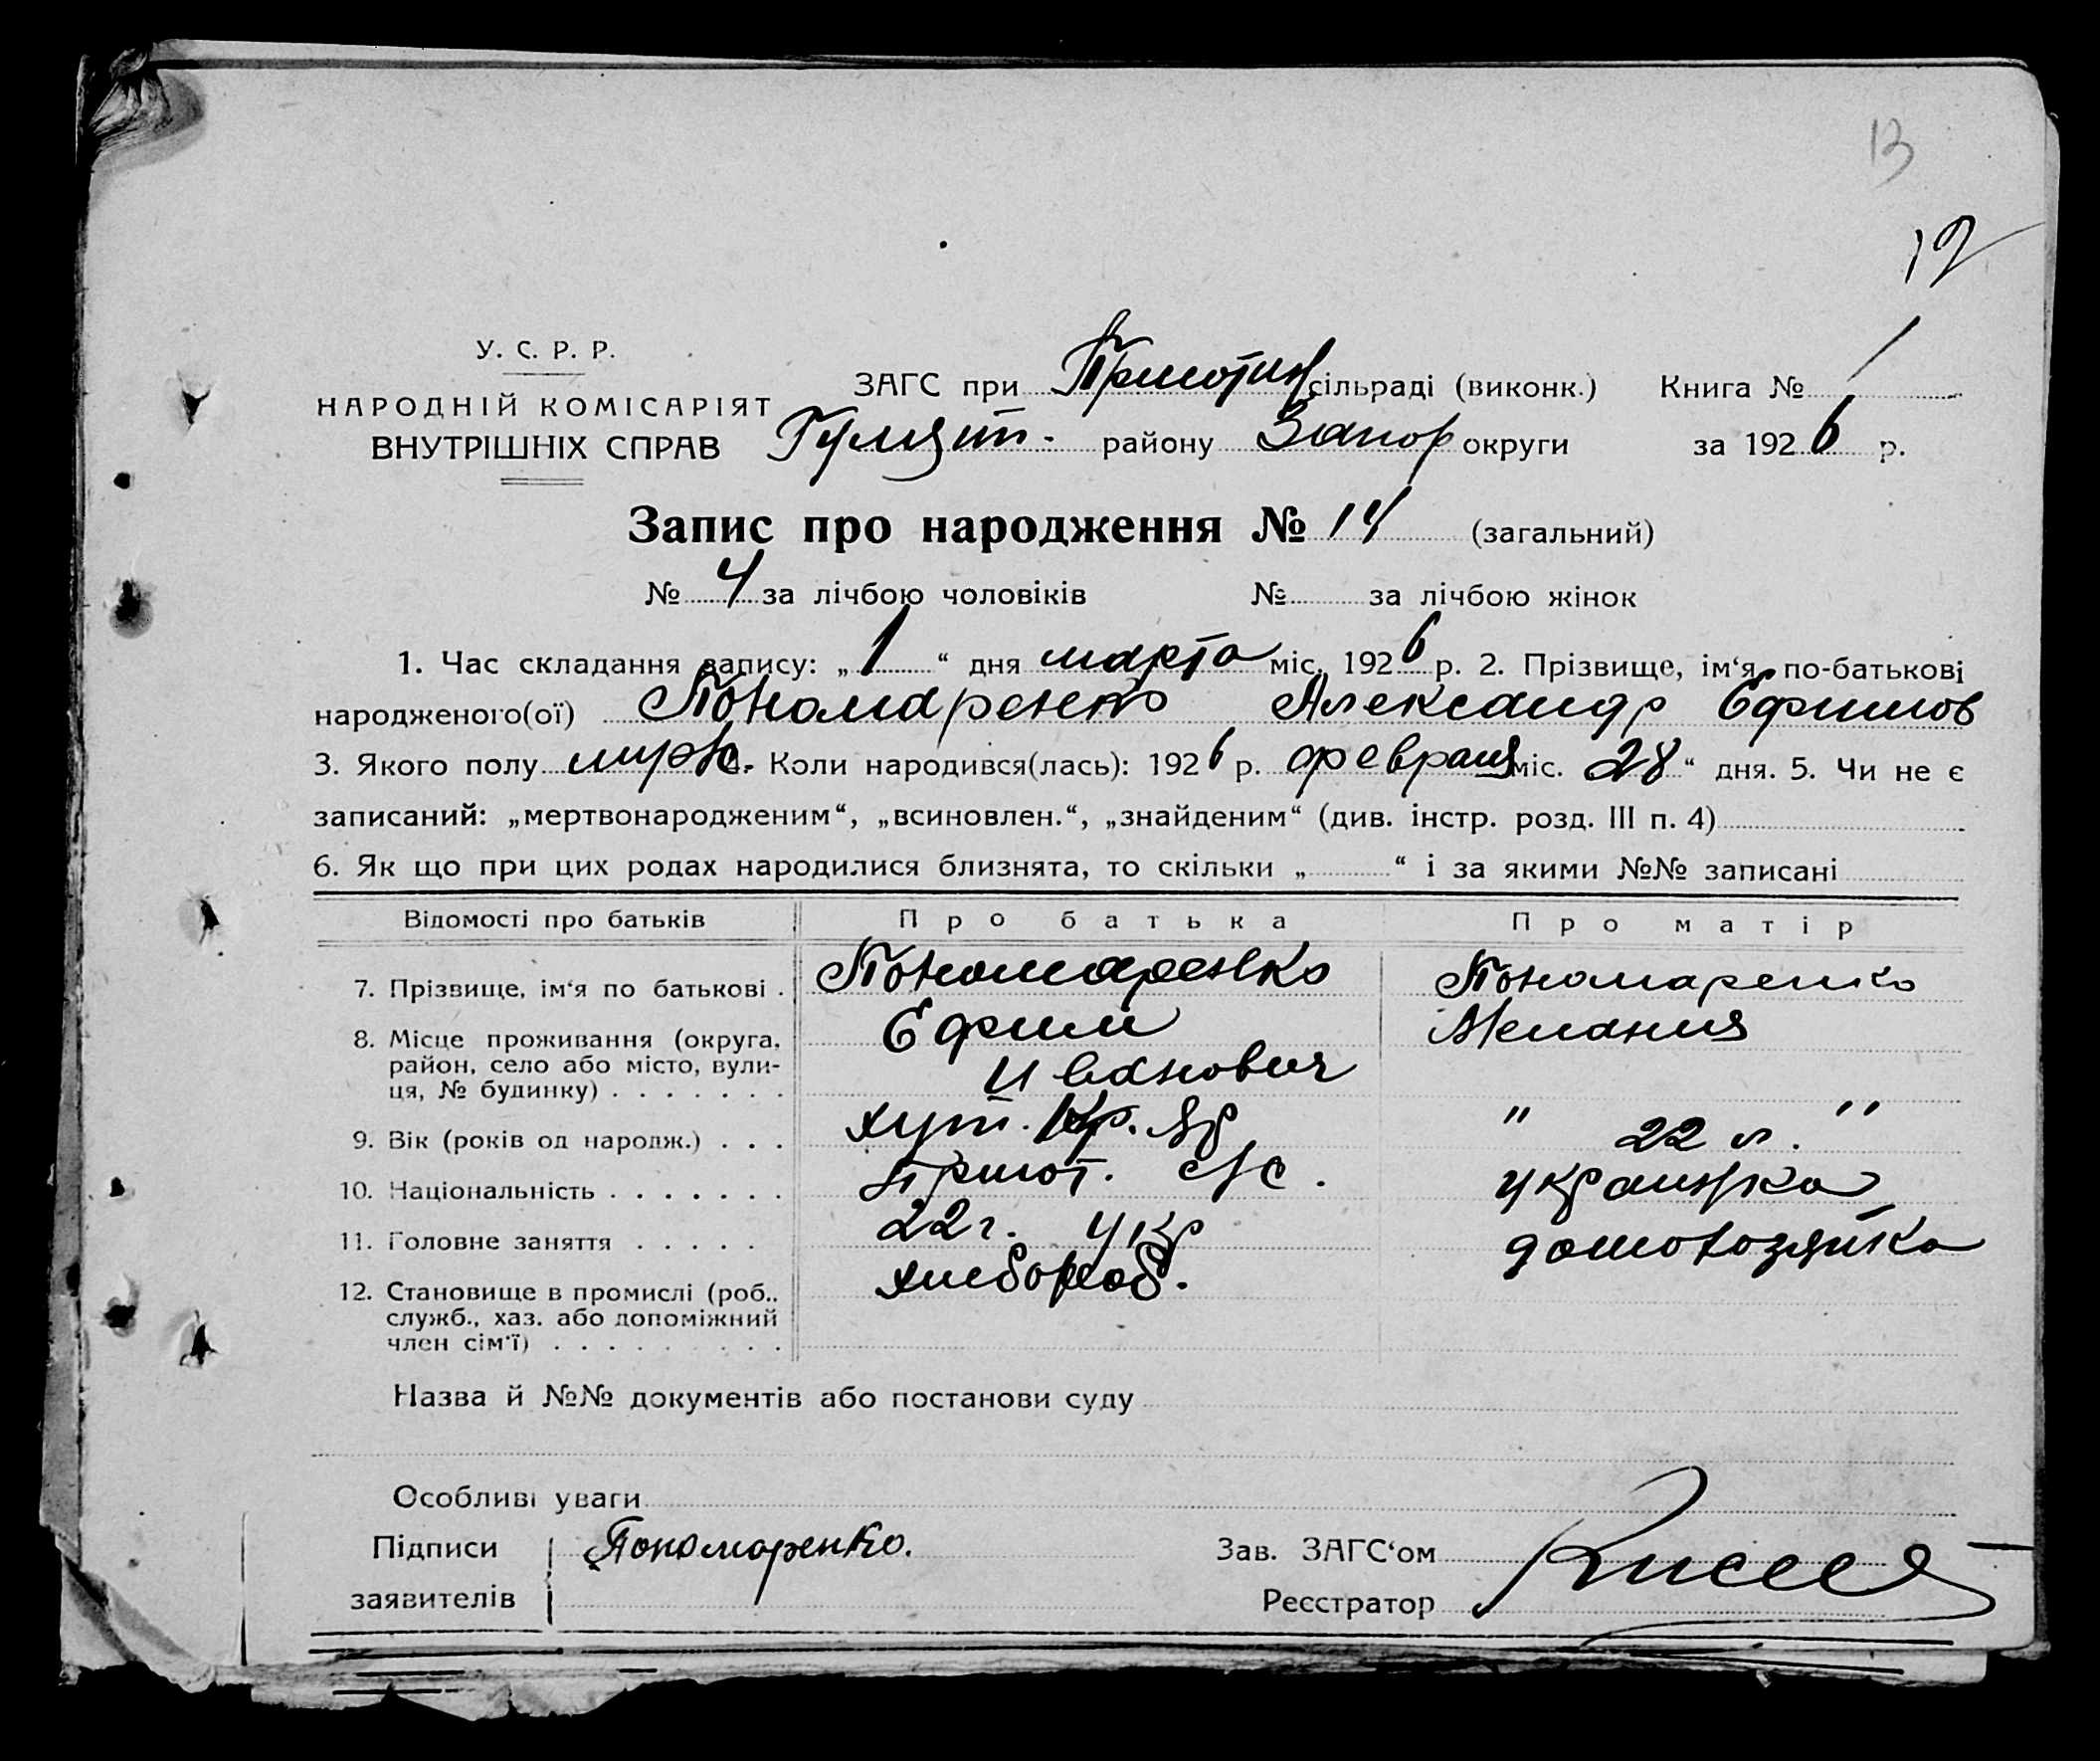 13
12
У. С. Р. Р.
НАРОДНІЙ КОМІСАРІЯТ
ВНУТРІШНІХ СПРАВ
ЗАГС при Приютин сільраді (виконк.) Книга № 1
Гуляйп. району Запор округи за 1926 р.
Запис про народження № 14 (загальний)
№ 4 за лічбою чоловіків № за лічбою жінок
1. Час складання запису: „1“ дня марта міс. 1926 р. 2. Прізвище, ім‘я, по-батькові
народженого(ої) Пономаренко Александр Ефимов
3. Якого полу муж 4. Коли народився(лась): 1926 р. февраля міс. 28“ дня. 5. Чи не є
записаний: „мертвонародженим“, „всиновлен.“, „знайденим“ (див. інстр. розд. III п. 4)
6. Як що при цих родах народилися близнята, то скільки „ “ і за якими №№ записані
Відомості про батьків Про батька Про матір
7. Прізвище, ім‘я по батькові . Пономаренко Пономаренко
8. Місце проживання (округа, Ефим Мелания
район, село або місто, вули- Иванович
ця, № будинку) . . . . . . . хут. Кр. " "
9. Вік (років од народж.) . . . 22 л.
10. Національність . . . . . . . Приют. с/с. украинка
11. Головне заняття . . . . . 22 г. укр домохозяйка
12. Становище в промислі (роб., хлебороб.
служб., хаз. або допоміжний
член сім‘ї) . . . . . . . . .
Назва й №№ документів або постанови суду
Особливі уваги
Підписи Пономаренко. Зав. ЗАГС‘ом
заявителів Реєстратор